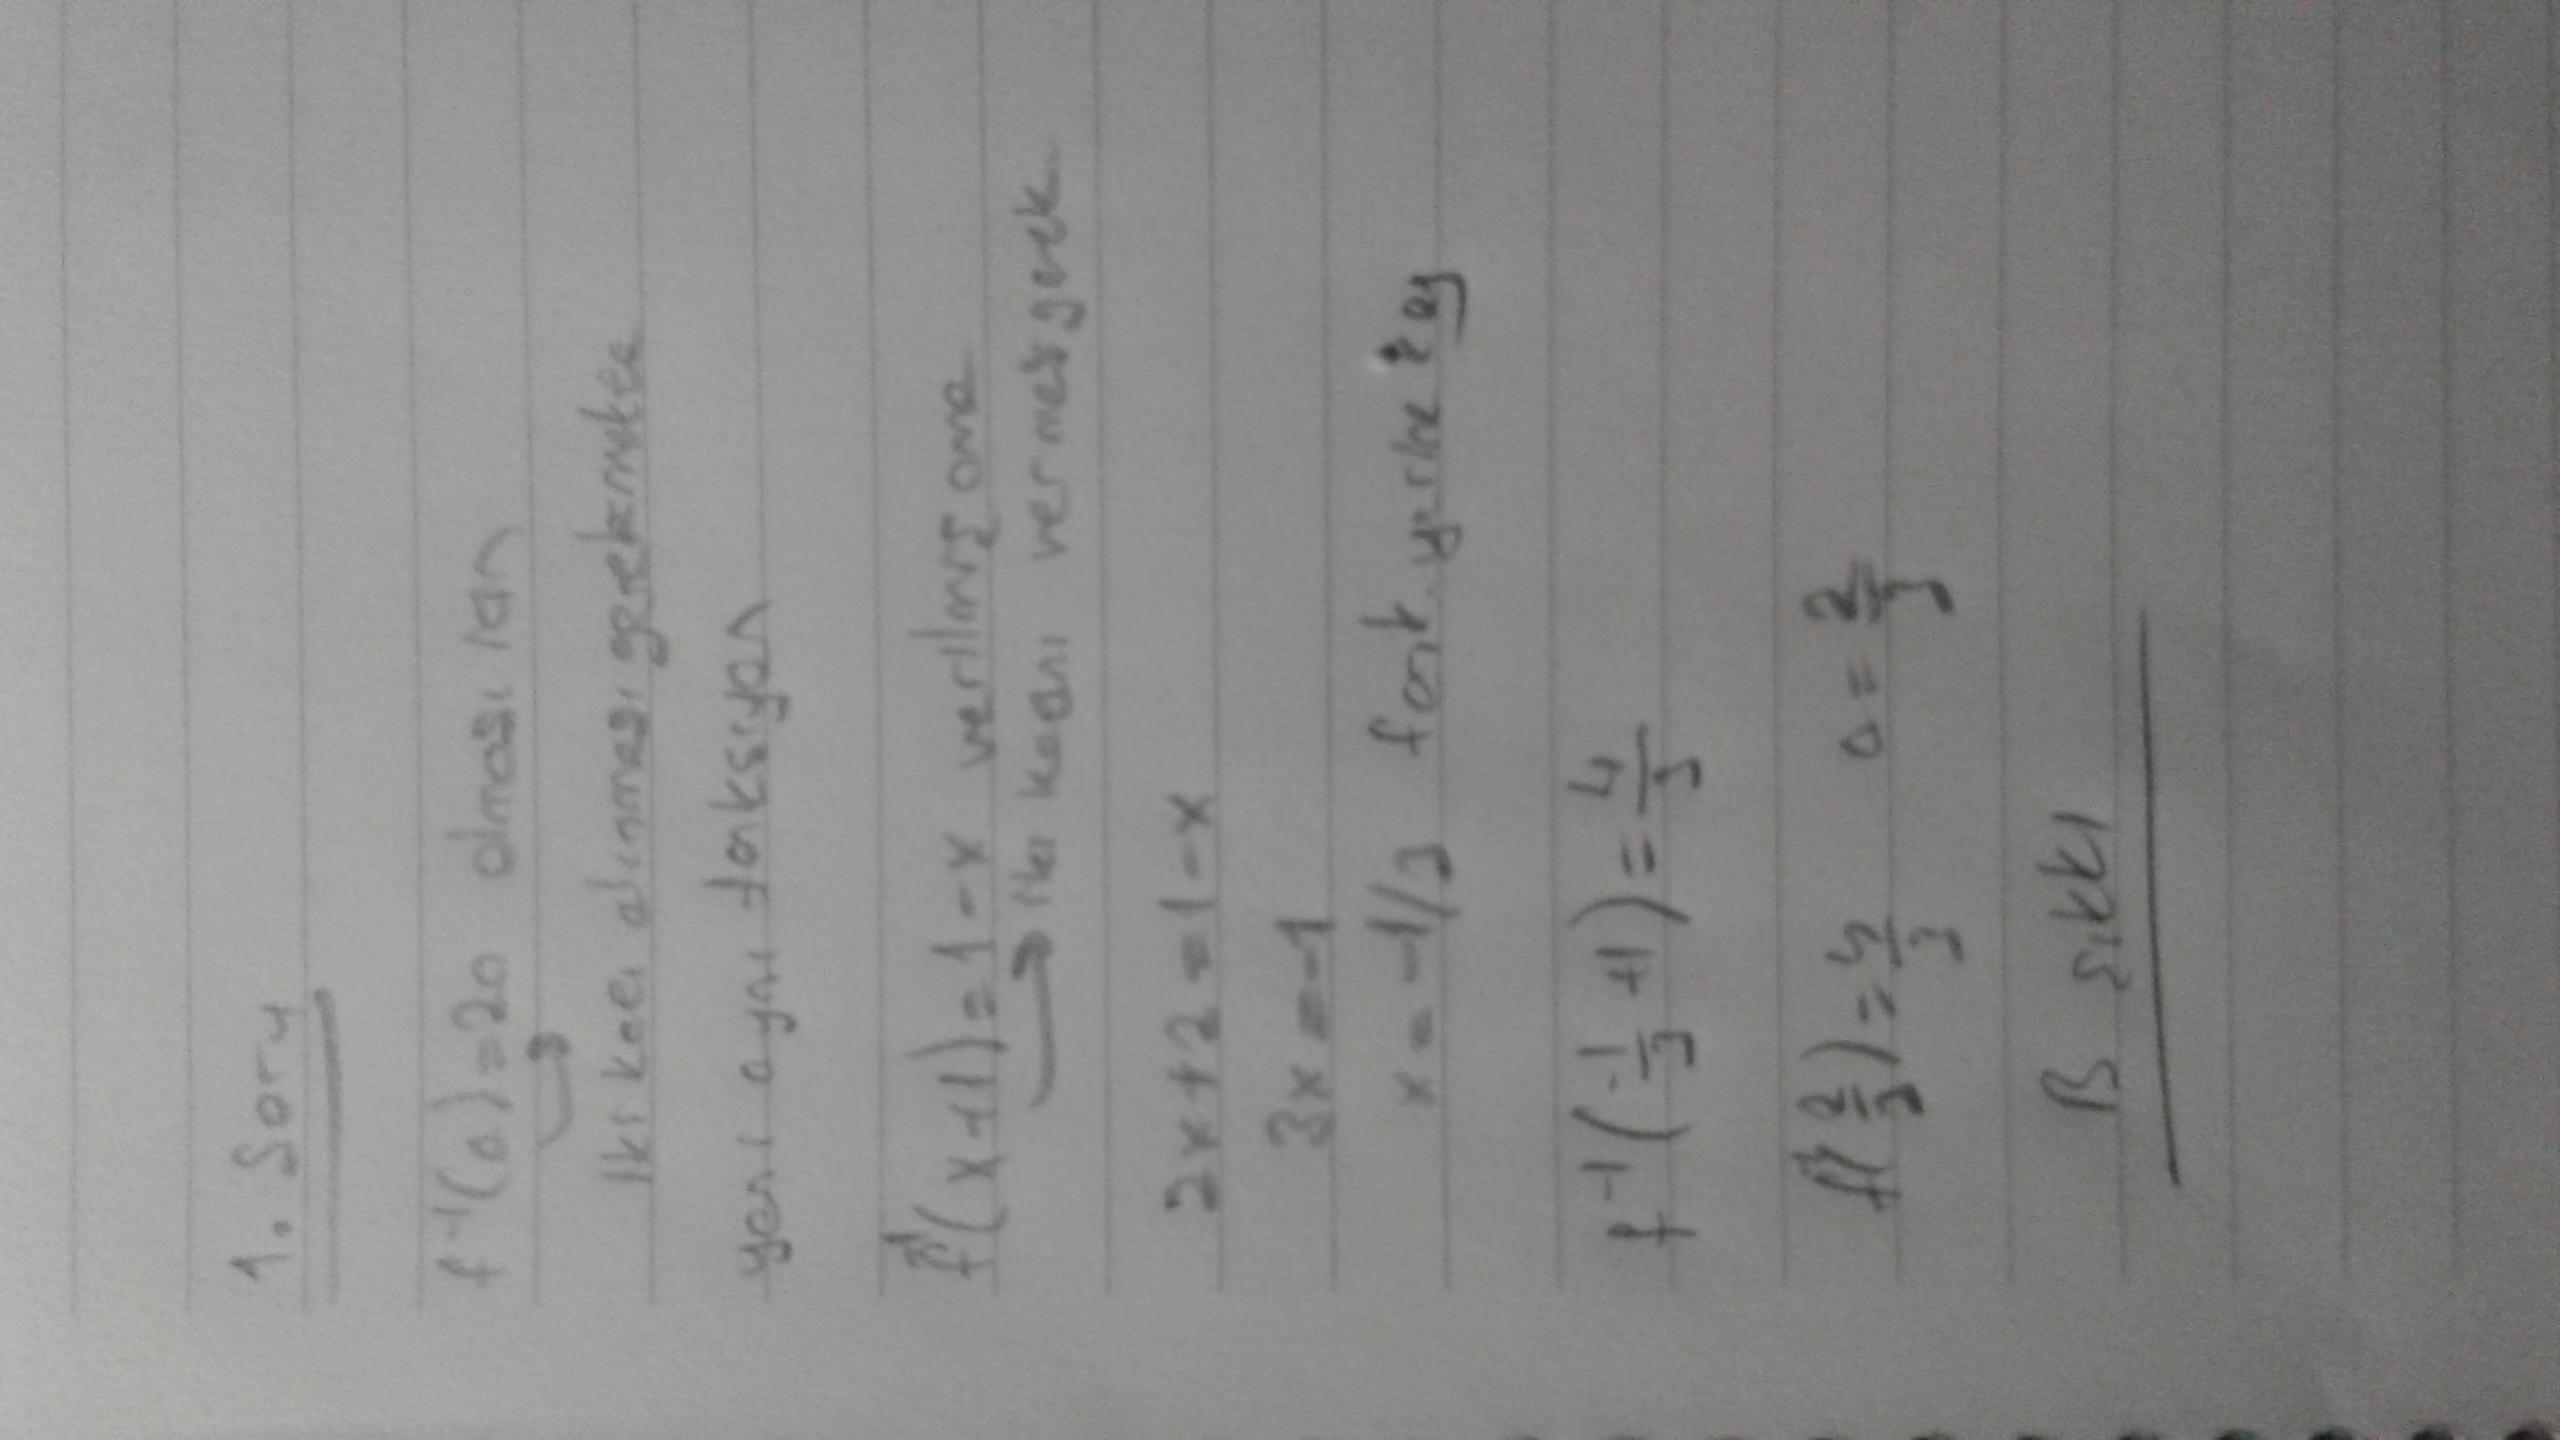 1. Soru
f⁻¹(a)=2a olması için
iki katı alınması gerekmekte
yani aynı fonksiyon
f⁻¹(x+1)=1-x verilmiş ama
iki katını vermesi gerek
2x+2=1-x
3x=-1
x=-1/3 fonk. yerine yaz
f⁻¹(-1/3 +1)=4/3
f⁻¹(2/3)=4/3 a=2/3
B şıkkı